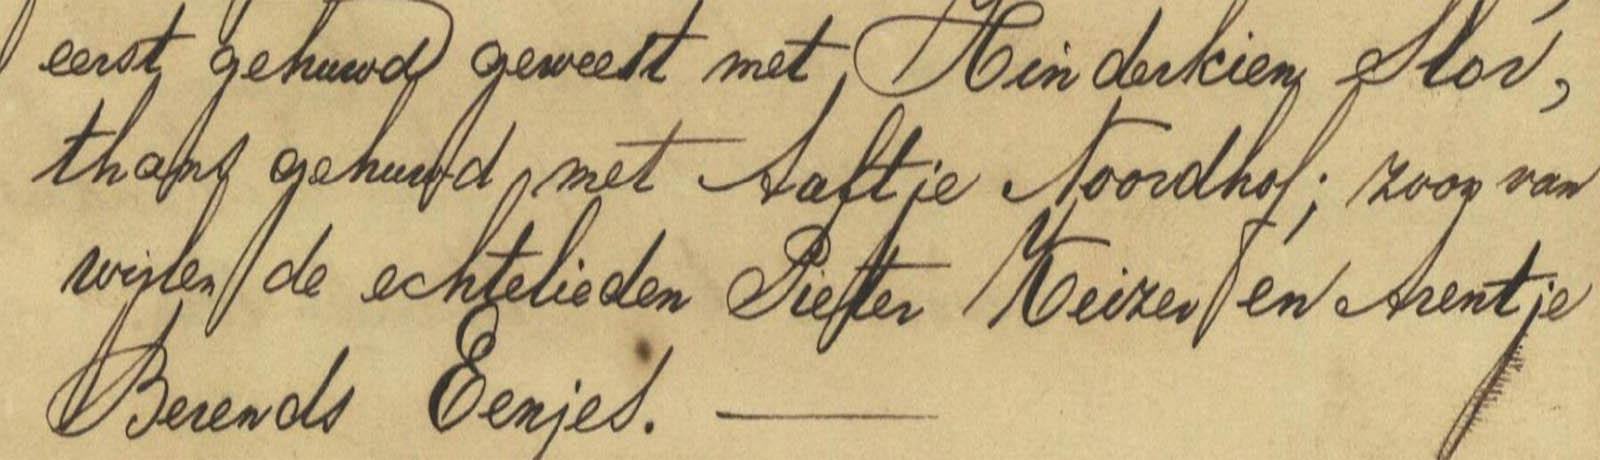 eerst gehuwd geweest met Hinderkien Slor,
thans gehuwd met Aaftje Noordhof; zoon van
wijlen de echtelieden Pieter Keizer en Arentje
Berends Eenjes.